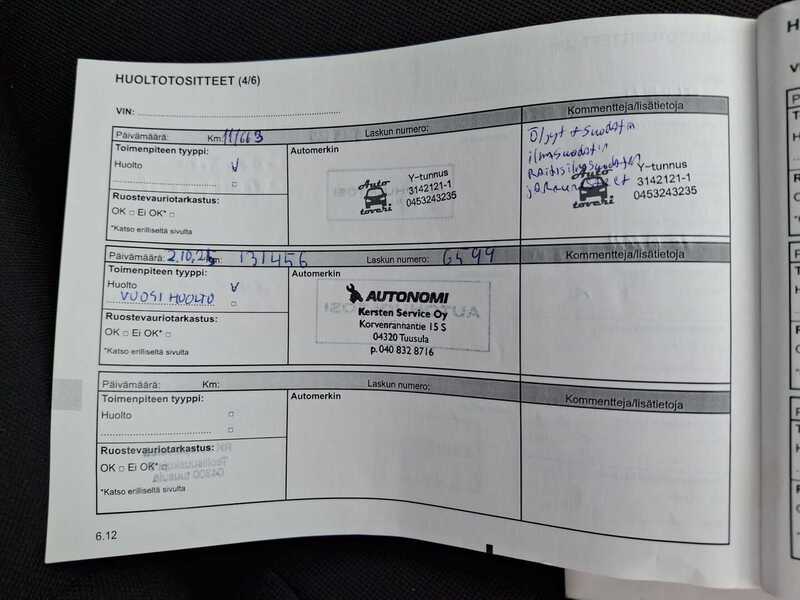 HUOLTOTOSITTEET (4/6)
VIN:
Päivämäärä: Km: 111663 Laskun numero: Kommentteja/lisätietoja
Toimenpiteen tyyppi:
Huolto V
Ruostevauriotarkastus:
OK □ Ei OK* □
*Katso erilliseltä sivulta
Automerkin
Auto
toveri
Y-tunnus
3142121-1
0453243235
Öljyt + suodatin
ilmasuodatin
raitisilmasuodatin
Auto
toveri
Y-tunnus
3142121-1
0453243235
Päivämäärä: 2.10.25 Km: 131456 Laskun numero: 6599 Kommentteja/lisätietoja
Toimenpiteen tyyppi:
Huolto V
VUOSI HUOLTO □
Ruostevauriotarkastus:
OK □ Ei OK* □
*Katso erilliseltä sivulta
Automerkin
AUTONOMI
Kersten Service Oy
Korvenrannantie 15 S
04320 Tuusula
p. 040 832 8716
Päivämäärä: Km: Laskun numero: Kommentteja/lisätietoja
Toimenpiteen tyyppi:
Huolto □
□
Ruostevauriotarkastus:
OK □ Ei OK* □
*Katso erilliseltä sivulta
Automerkin
6.12